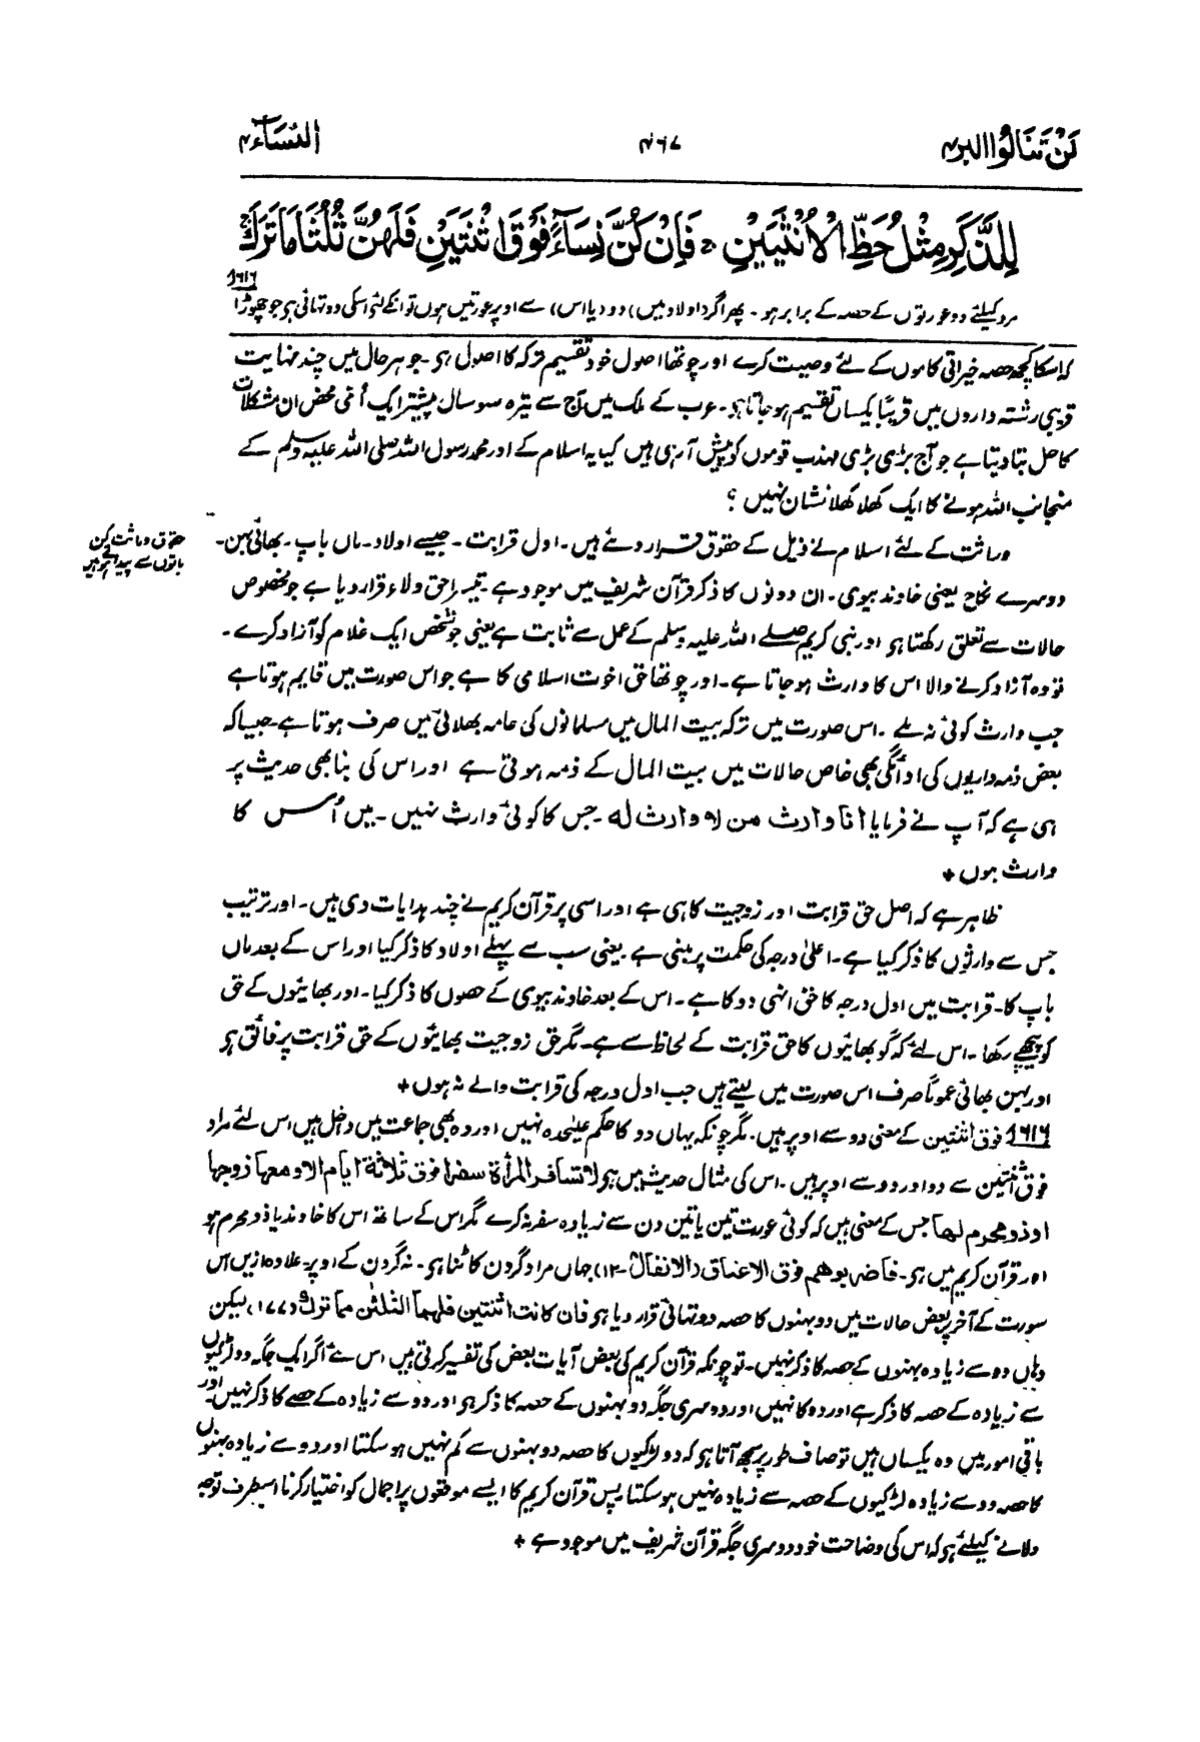 لَنْ تَنَالُوا البر۴
۴۶۷
النسآء۴
لِلذَّكَرِ مِثْلُ حَظِّ الْاُنْثَيَيْنِ ۚ فَاِنْ كُنَّ نِسَآءً فَوْقَ اثْنَتَيْنِ فَلَهُنَّ ثُلُثَا مَا تَرَكَ ۚ
۶۱۶
مرد کیلئے دو عورتوں کے حصہ کے برابر ہو۔ پھر اگر (اولاد میں) دو (یا اس) سے اوپر عورتیں ہوں تو انکے لئے اسکی دو تہائی ہی جو چھوڑا
کہ اسکا کچھ حصہ خیراتی کاموں کے لئے وصیت کرے اور چوتھا اصول خود تقسیم ترکہ کا اصول ہی۔ جو ہر حال میں چند نہایت
قریبی رشتہ داروں میں قریبًا یکساں تقسیم ہو جاتا ہو۔ عرب کے ملک میں آج سے تیرہ سو سال پیشتر ایک اُمی محض ان مشکلات
کا حل بتا دیتا ہے جو آج بڑی بڑی مہذب قوموں کو پیش آ رہی ہیں کیا یہ اسلام کے اور محمد رسول اللہ صلی اللہ علیہ وسلم کے
منجانب اللہ ہونے کا ایک کھلا کھلا نشان نہیں ؟
وراثت کے لئے اسلام نے ذیل کے حقوق قرار دئے ہیں۔ اول قرابت۔ جیسے اولاد۔ ماں باپ۔ بھائی بہن۔
حقوق وراثت کن
باتوں سے پیدا ہوتے ہیں
دوسرے نکاح یعنی خاوند بیوی۔ ان دونوں کا ذکر قرآن شریف میں موجود ہے۔ تیسرا حق ولاء قرار دیا ہے جو مخصوص
حالات سے تعلق رکھتا ہو اور نبی کریم صلے اللہ علیہ وسلم کے عمل سے ثابت ہے یعنی جو شخص ایک غلام کو آزاد کرے۔
تو وہ آزاد کرنے والا اس کا وارث ہو جاتا ہے۔ اور چوتھا حق اخوت اسلامی کا ہے جو اس صورت میں قایم ہوتا ہے
جب وارث کوئی نہ ملے۔ اس صورت میں ترکہ بیت المال میں مسلمانوں کی عامہ بھلائی میں صرف ہوتا ہے۔ جیسا کہ
بعض ذمہ داریوں کی ادائگی بھی خاص حالات میں بیت المال کے ذمہ ہوتی ہے اور اس کی بنا بھی حدیث پر
ہی ہے کہ آپ نے فرمایا انا وارث من لا وارث له۔ جس کا کوئی وارث نہیں۔ میں اُس کا
وارث ہوں +
ظاہر ہے کہ اصل حق قرابت اور زوجیت کا ہی ہے اور اسی پر قرآن کریم نے چند ہدایات دی ہیں۔ اور ترتیب
جس سے وارثوں کا ذکر کیا ہے۔ اعلیٰ درجہ کی حکمت پر مبنی ہے یعنی سب سے پہلے اولاد کا ذکر کیا اور اس کے بعد ماں
باپ کا۔ قرابت میں اول درجہ کا حق انہی دو کا ہے۔ اس کے بعد خاوند بیوی کے حصوں کا ذکر کیا۔ اور بھائیوں کے حق
کو پیچھے رکھا۔ اس لئے کہ گو بھائیوں کا حق قرابت کے لحاظ سے ہے۔ مگر حق زوجیت بھائیوں کے حق قرابت پر فائق ہو
اور بہن بھائی عموماً صرف اس صورت میں لیتے ہیں جب اول درجہ کی قرابت والے نہ ہوں +
۶۱۶ فوق اثنتین کے معنی دو سے اوپر ہیں۔ مگر چونکہ یہاں دو کا حکم علیحدہ نہیں اور وہ بھی جماعت میں داخل ہیں اس لئے مراد
فوق اثنتین سے دو اور دو سے اوپر ہیں۔ اس کی مثال حدیث میں ہو لا تسافر المرأة سفرا فوق ثلاثة ايام الا ومعها زوجها
او ذو محرم لها جس کے معنی ہیں کہ کوئی عورت تین یا تین دن سے زیادہ سفر نہ کرے مگر اس کے ساتھ اس کا خاوند یا ذو محرم ہو
اور قرآن کریم میں ہو۔ فاضربوا فوق الاعناق (الانفال ۱۲) جہاں مراد گردن کاٹنا ہو۔ نہ گردن کے اوپر۔ علاوہ ازیں اس
سورت کے آخر پر بعض حالات میں دو بہنوں کا حصہ دو تہائی قرار دیا ہو فان كانت اثنتين فلهما الثلثن مما ترك (۱۷۷)۔ لیکن
وہاں دو سے زیادہ بہنوں کے حصہ کا ذکر نہیں۔ تو چونکہ قرآن کریم کی بعض آیات بعض کی تفسیر کرتی ہیں اس لئے اگر ایک جگہ دو لڑکیوں
سے زیادہ کے حصہ کا ذکر ہے اور دو کا نہیں اور دوسری جگہ دو بہنوں کے حصہ کا ذکر ہو اور دو سے زیادہ کے حصے کا ذکر نہیں اور
باقی امور میں وہ یکساں ہیں تو صاف طور پر سمجھ آتا ہو کہ دو لڑکیوں کا حصہ دو بہنوں سے کم نہیں ہو سکتا اور دو سے زیادہ بہنوں
کا حصہ دو سے زیادہ لڑکیوں کے حصہ سے زیادہ نہیں ہو سکتا پس قرآن کریم کا ایسے موقعوں پر اجمال کو اختیار کرنا اسطرف توجہ
دلانے کیلئے ہو کہ اس کی وضاحت خود دوسری جگہ قرآن شریف میں موجود ہے +